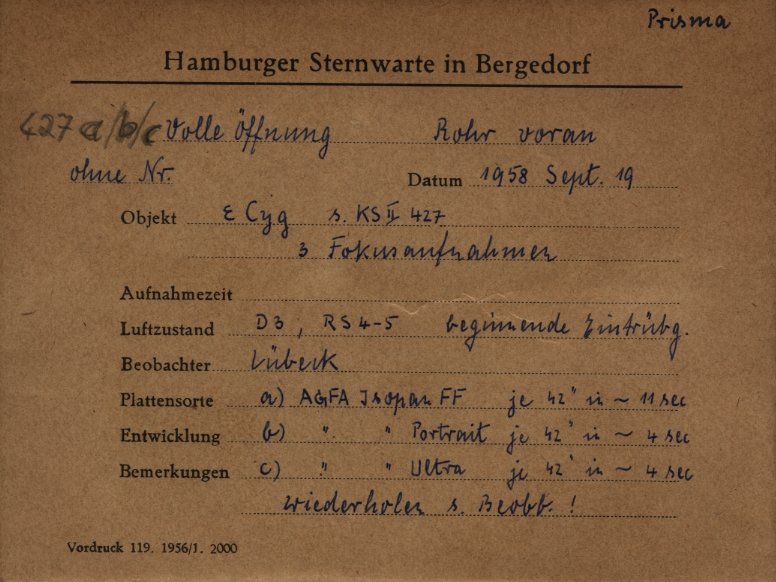 Prisma
Hamburger Sternwarte in Bergedorf
427 a/b/c Volle Öffnung Rohr voran
ohne Nr. Datum 1958 Sept. 19
Objekt ε Cyg s. KS II 427
3 Fokusaufnahmen
Aufnahmezeit
Luftzustand D3, RS 4-5 beginnende Eintrübg.
Beobachter Lübeck
Plattensorte a) AGFA Isopan FF je 42" in ~ 11 sec
Entwicklung b) " " Portrait je 42" in ~ 4 sec
Bemerkungen c) " " Ultra je 42" in ~ 4 sec
wiederholen s. Beobb. !
Vordruck 119. 1956/1. 2000